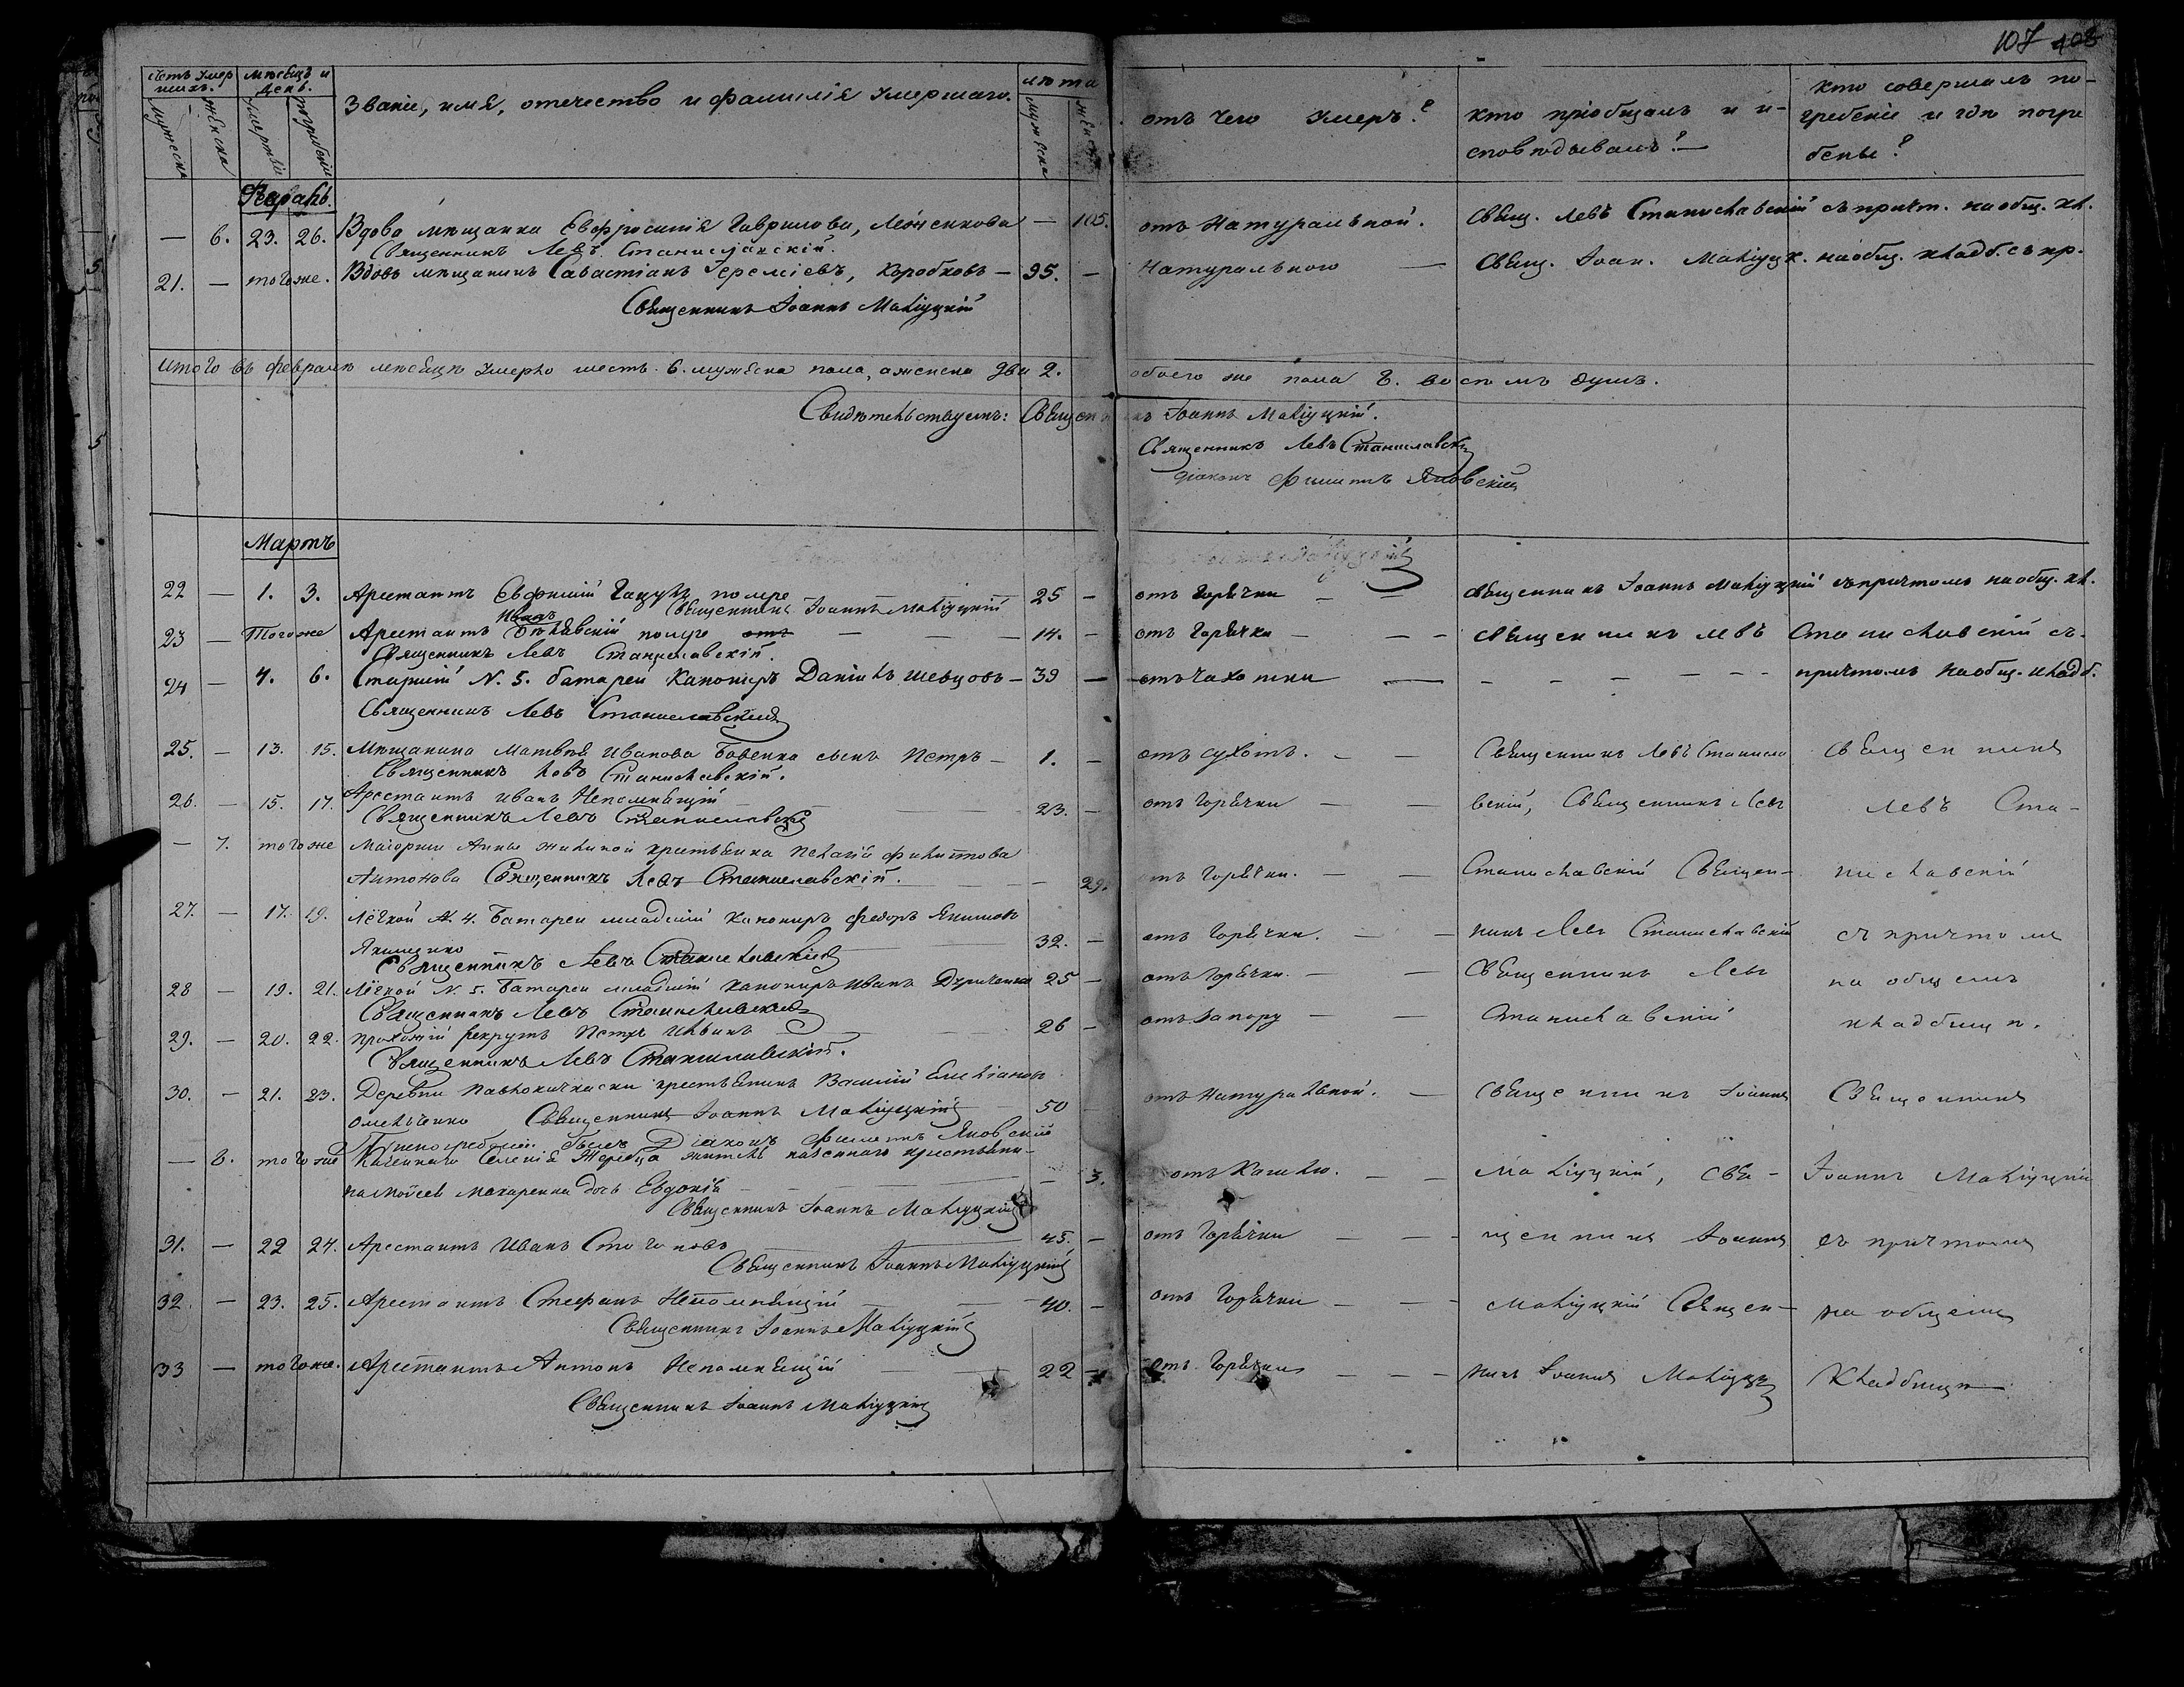 107 408
Счетъ умер мѣсяцъ и лѣта
шихъ. день.
Званіе, имя, отечество и фамилія умершаго.
Мужеска Женска смерти погребенія Мужеска Женска
отъ чего умеръ? кто пріобщалъ и и- кто совершалъ по-
сповѣдывалъ? гребеніе и гдѣ погре
бены?
Февраль.
— 6. 23. 26. Вдова мѣщанка Евфросинія Гаврилова, — 105. отъ Натуральной. Свящ. Левъ Станиславскій съ причт. на общ. кл.
Священникъ Левъ Станиславскій.
21. — того же. Вдовъ мѣщанинъ Савастіанъ Іереміевъ, Коробковъ — 95. — Натуральною — Свящ. Іоан. Маліуцк. на общ. кладб. съ пр.
Священникъ Іоаннъ Маліуцкій
Итого въ февралѣ мѣсяцѣ умерло шесть 6. мужеска пола, а женска два 2. обоего же пола 8. восемь душъ.
Свидѣтельствуемъ: Священникъ Іоаннъ Маліуцкій.
Священникъ Левъ Станиславскій
діаконъ Филиппъ Яновскій
Мартъ
22 — 1. 3. Арестантъ Евфимій помре — 25 — отъ Горячки — Священникъ Іоаннъ Маліуцкій съ причтомъ на общ. кл.
Священникъ Іоаннъ Маліуцкій
Иванъ
23 — Того же Арестантъ Бѣлявскій помре отъ — — — 14. — отъ Горячки — — — Священникъ Левъ Станиславскій съ-
Священникъ Левъ Станиславскій.
24 — 4. 6. Старшій N. 5. батареи Канониръ Даніилъ Шевцовъ — 39 — отъ чахотки — — — — — — причтомъ на общ. кладб.
Священникъ Левъ Станиславскій
25. — 13. 15. Мѣщанина Матвѣя Иванова Бовенка сынъ Петръ — 1. — отъ сухотъ. — — Священникъ Левъ Станисла Священникъ
Священникъ Левъ Станиславскій.
26. — 15. 17. Арестантъ Иванъ Непомнящій — — 23. — отъ Горячки — — вскій, Священникъ Левъ Левъ Ста-
Священникъ Левъ Станиславскій
— 7. того же Маіорши Анны крестьянка Пелагія Филиппова
Антонова Священникъ Левъ Станиславскій. — — — 29. отъ Горячки. — — Станиславскій Священ- ниславскій
27. — 17. 19. Лёгкой N. 4. Батареи младшій Канониръ Федоръ Якимовъ
Якименко — — 32. — отъ Горячки. — — никъ Левъ Станиславскій съ причтомъ
Священникъ Левъ Станиславскій
28 — 19. 21. Лёгкой N. 5. Батареи младшій канониръ Иванъ 25 — отъ Горячки. — — Священникъ Левъ на общемъ
Священникъ Левъ Станиславскій
29. — 20. 22. прохожій рекрутъ Петръ Ильинъ — — 26 — отъ Запору — — Станиславскій кладбищѣ.
Священникъ Левъ Станиславскій.
30. — 21. 23. Деревни Павлокичкаски крестьянинъ Василій Емеліановъ
Омельченко Священникъ Іоаннъ Маліуцкій — 50 — отъ Натуральной. — Священникъ Іоаннъ Священникъ
При погребеніи былъ Діаконъ Филиппъ Яновскій
— 8. того же Казеннаго Селенія Жеребца жителя казеннаго крестьяни-
на Моисея Макаренка дочь Евдокія — — — 3. отъ Кашлю. — — Маліуцкій, Свя- Іоаннъ Маліуцкій
Священникъ Іоаннъ Маліуцкій
31. — 22 24. Арестантъ Иванъ Стогновъ — 45. — отъ Горячки — — — щенникъ Іоаннъ съ причтомъ
Священникъ Іоаннъ Маліуцкій
32. — 23. 25. Арестантъ Стефанъ Непомнящій — — 40. — отъ Горячки — — — Маліуцкій Священ- на общемъ
Священникъ Іоаннъ Маліуцкій
33 — того же. Арестантъ Антонъ Непомнящій — — 22 — отъ Горячки — — — никъ Іоаннъ Маліуцкій Кладбищѣ
Священникъ Іоаннъ Маліуцкій